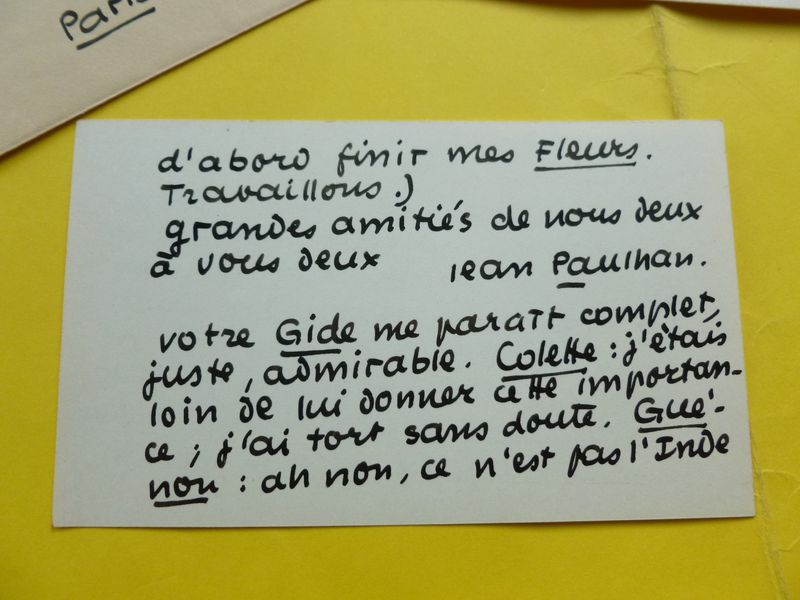 Paris
d'abord finir mes Fleurs.
Travaillons.)
grandes amitiés de nous deux
à vous deux Jean Paulhan.
votre Gide me paraît complet,
juste, admirable. Colette : j'étais
loin de lui donner cette importan-
ce ; j'ai tort sans doute. Gué-
non : ah non, ce n'est pas l'Inde